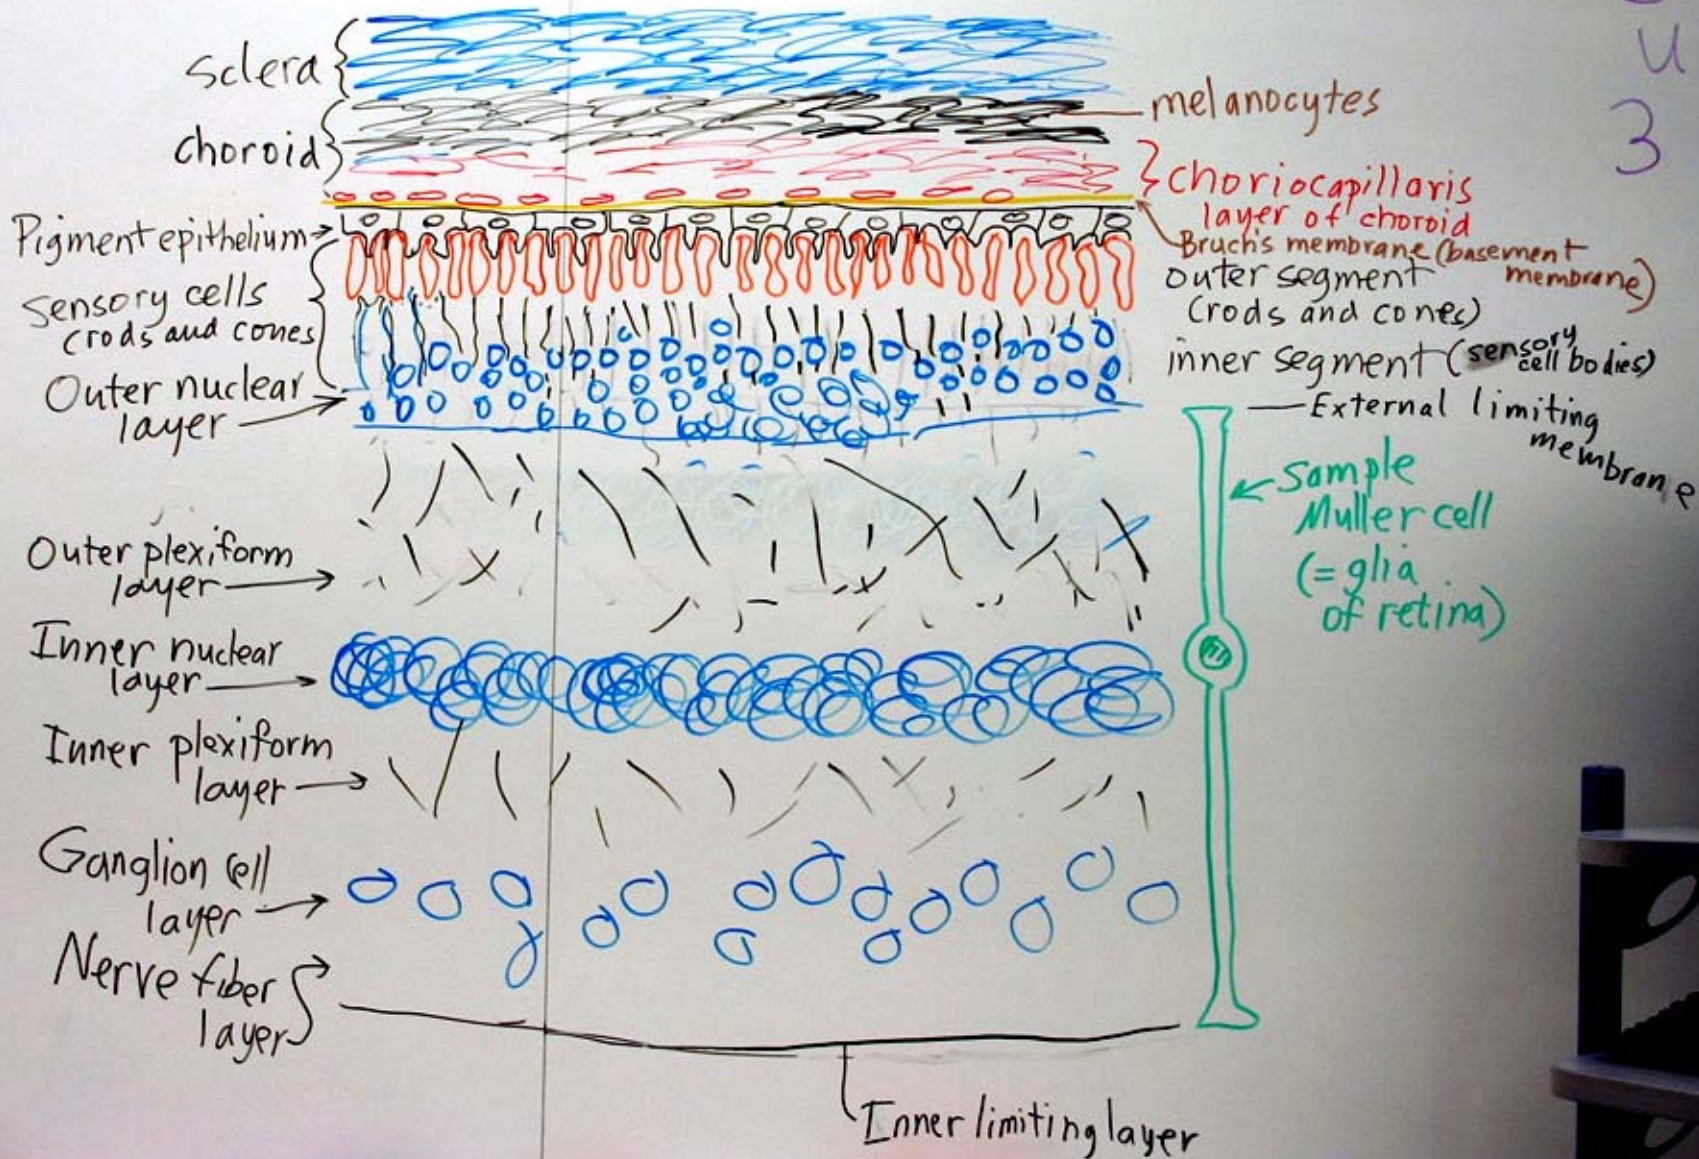 sclera
choroid
Pigment epithelium
Sensory cells
(rods and cones)
Outer nuclear
layer
Outer plexiform
layer
Inner nuclear
layer
Inner plexiform
layer
Ganglion cell
layer
Nerve fiber
layer
melanocytes
choriocapillaris
layer of choroid
Bruch's membrane (basement
membrane)
outer segment
(rods and cones)
inner segment (sensory
cell bodies)
External limiting
membrane
Sample
Muller cell
(= glia
of retina)
Inner limiting layer
u
3